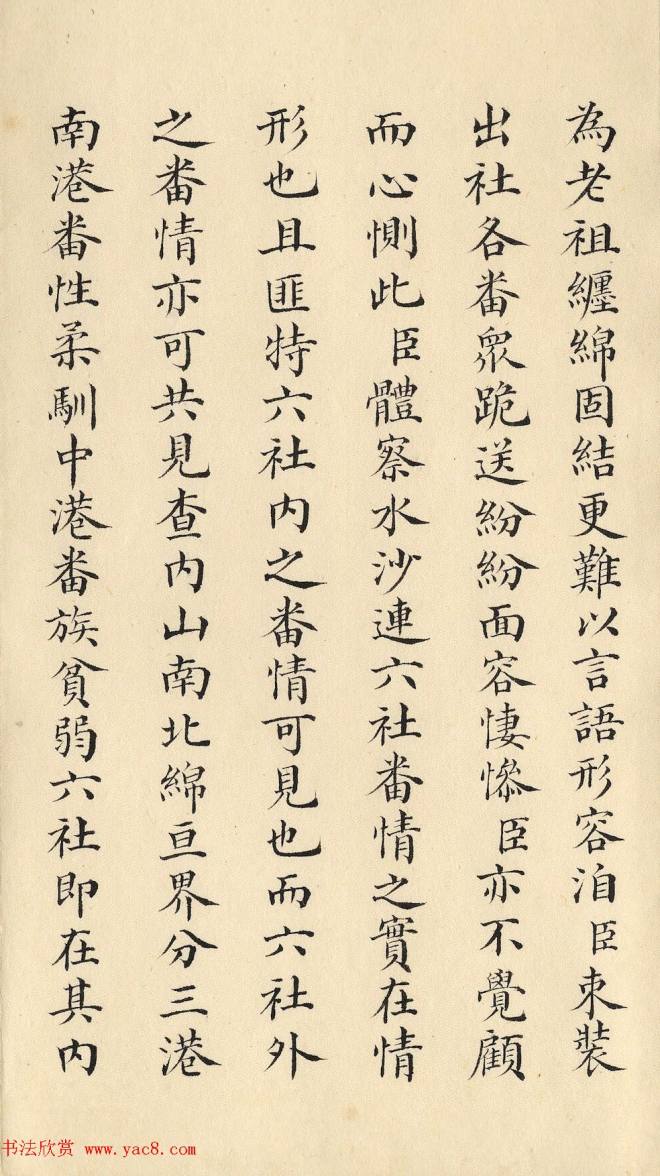 為老祖纏綿固結更難以言語形容洎臣束裝
出社各番眾跪送紛紛面容悽慘臣亦不覺顧
而心惻此臣體察水沙連六社番情之實在情
形也且匪特六社內之番情可見也而六社外
之番情亦可共見查內山南北綿亘界分三港
南港番性柔馴中港番族貧弱六社即在其內
书法欣赏 www.yac8.com